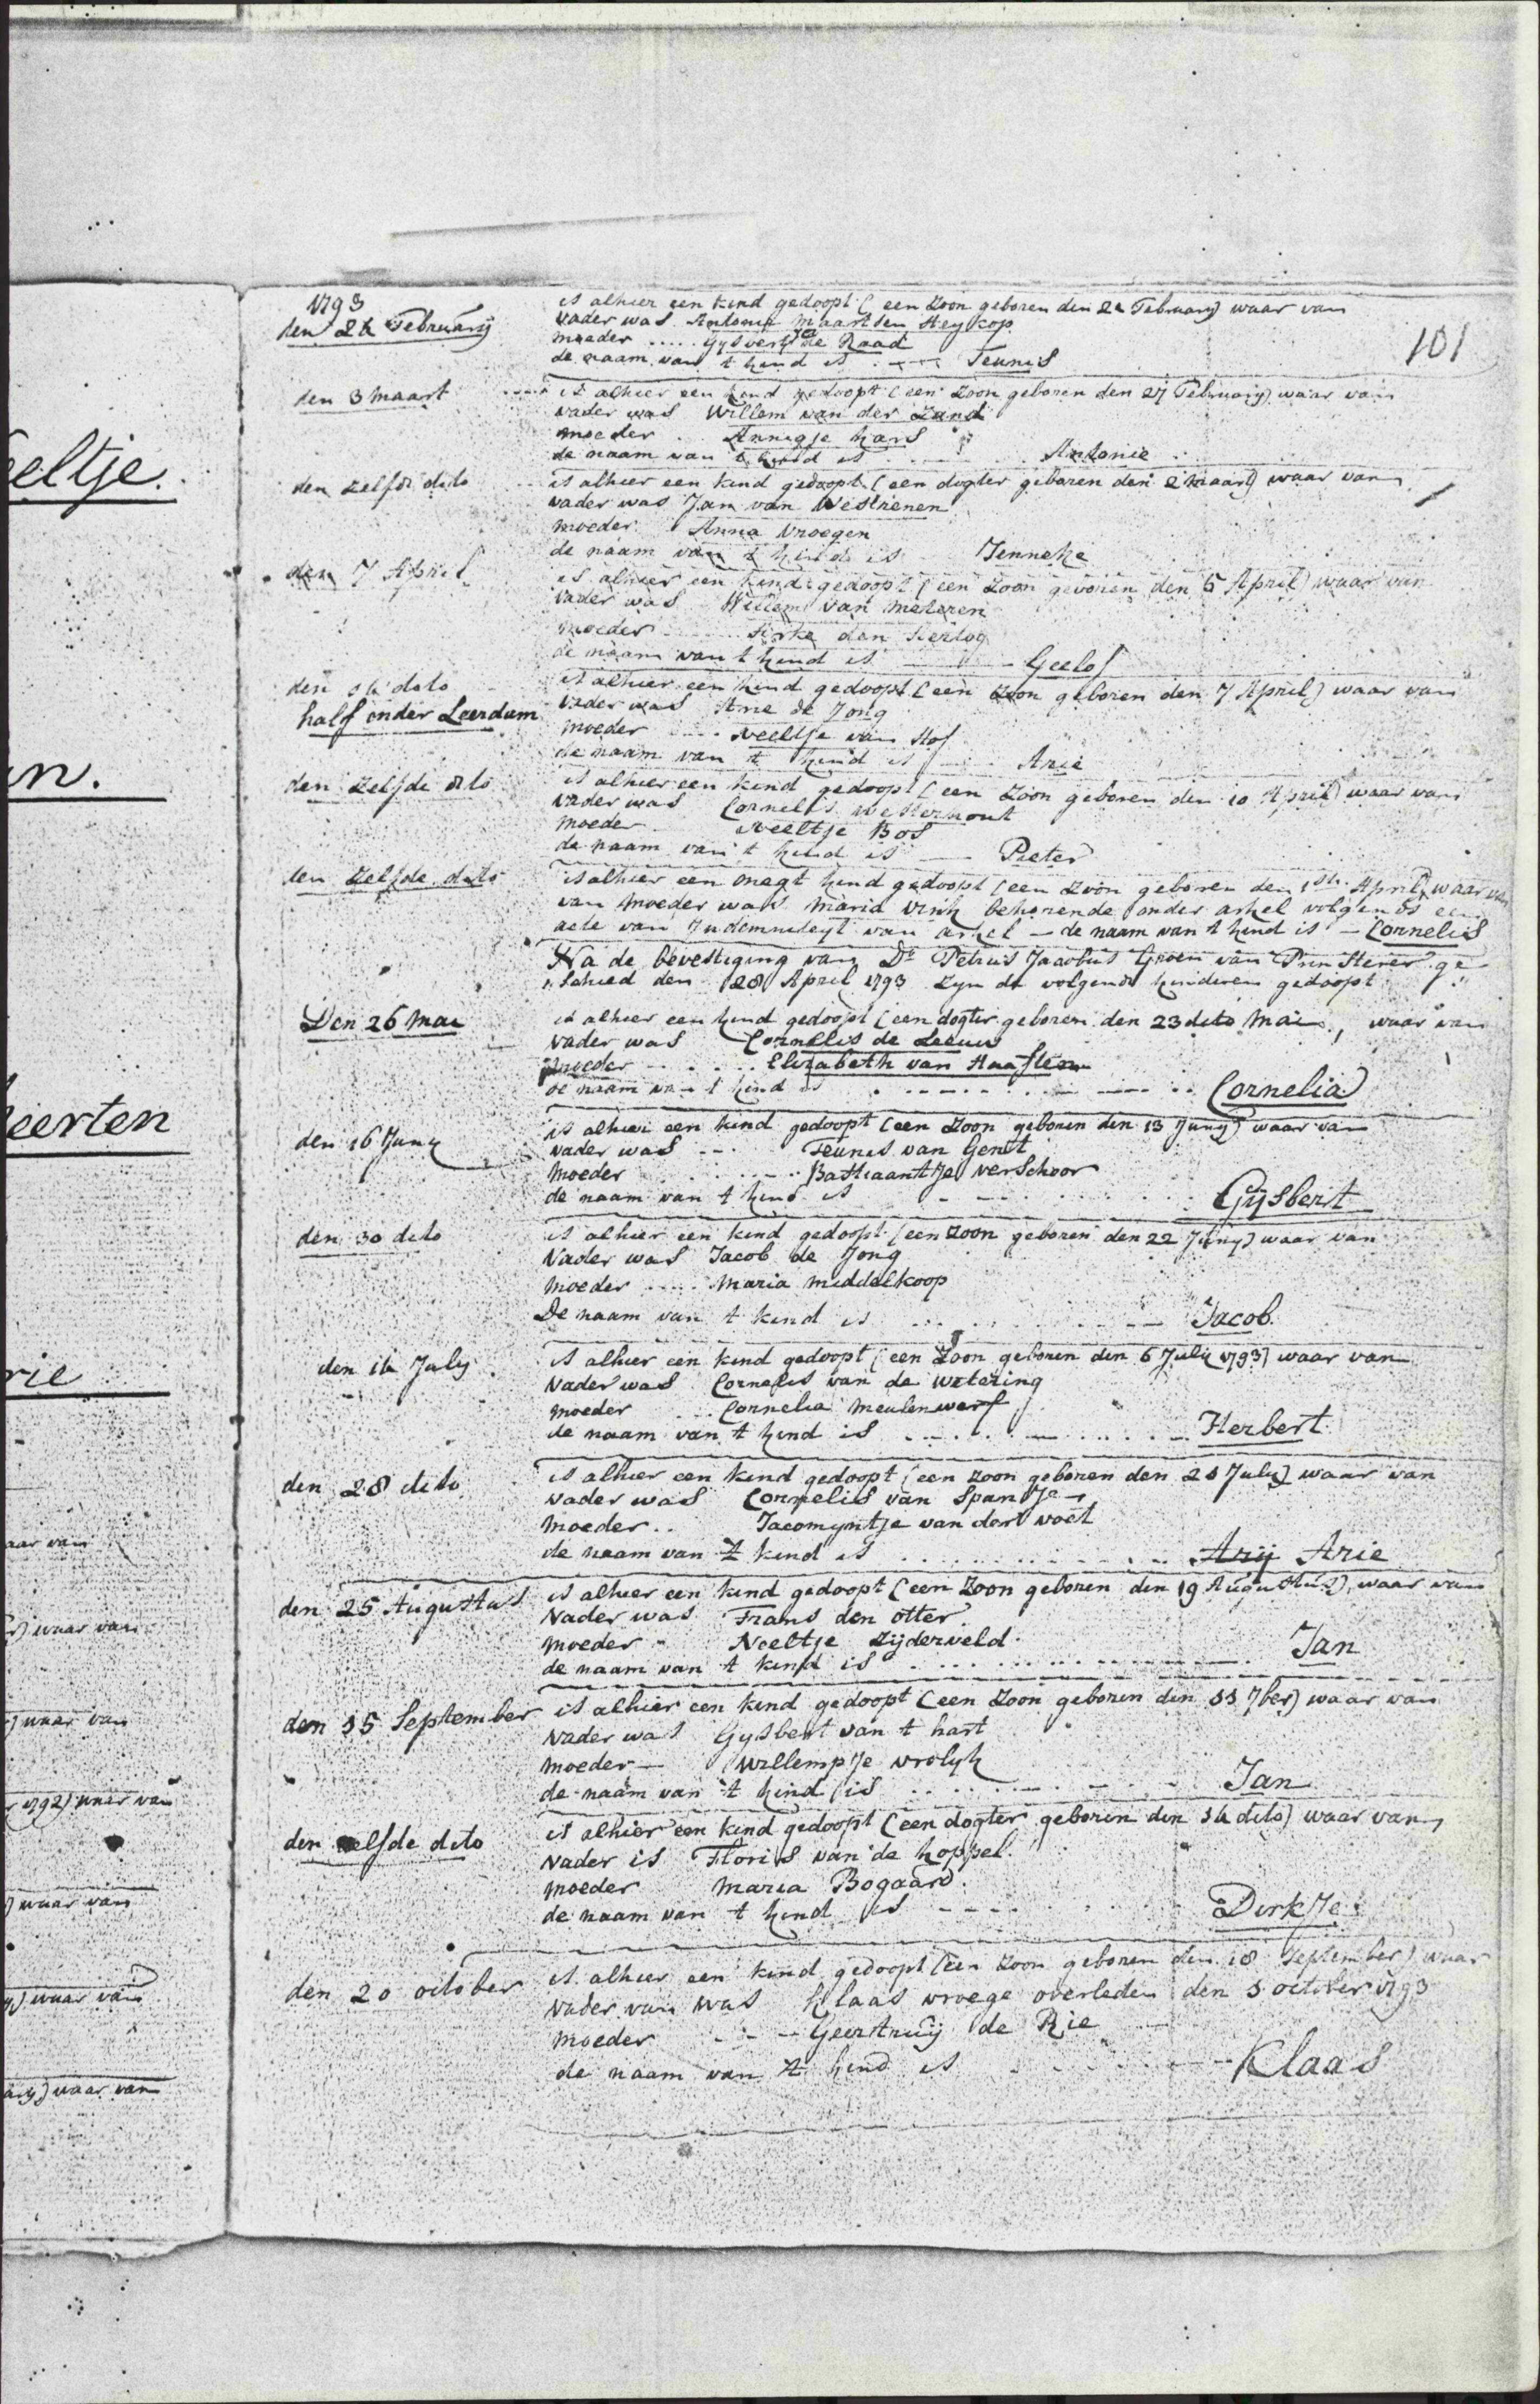 eltje.
n.
eerten
rie
aar van
) waar van
) waar van
1792) waar van
) waar van
) waar van
) waar van
101
1793
den 24 February
is alhier een kind gedoopt (een zoon geboren den 22 February) waar van
vader was Antonie Maarten Heykop
moeder ..... Gysbertje de Raad
de naam van t kind is ... Teunis
den 3 maart
is alhier een kind gedoopt (een zoon geboren den 27 February) waar van
vader was Willem van der Zand
moeder . Annigje hars
de naam van t kind is Antonie
den zelfde dito
is alhier een kind gedoopt (een dogter geboren den 2 maart) waar van
vader was Jan van Westrenen
moeder Anna Vroegen
de naam van t kind is Jenneke
den 7 April
is alhier een kind gedoopt (een zoon geboren den 5 April) waar van
vader was Willem van Meteren
moeder ... den Hertog
de naam van t kind is Geelof
den 14 dito
half onder Leerdam
is alhier een kind gedoopt (een zoon geboren den 7 April) waar van
vader was Arie de Jong
moeder Neeltje van Hof
de naam van t kind is Arie
den zelfde dito
is alhier een kind gedoopt (een zoon geboren den 10 April) waar van
vader was Cornelis Westernout
moeder Neeltje Bos
de naam van t kind is — Pieter
den zelfde dito
is alhier een onegt kind gedoopt (een zoon geboren den 1sten April) waar van
van moeder was Maria Vink behorende onder arkel volgends een
acte van Indemniteyt van arkel — de naam van t kind is — Cornelis
Na de bevestiging van Ds Petrus Jacobus Groen van Prinsterer ge-
schied den 28 April 1793 zyn de volgende kinderen gedoopt
Den 26 Mai
is alhier een kind gedoopt (een dogter geboren den 23 dito Mai, waar van
vader was Cornelis de Leeuw
moeder .... Elizabeth van Haaften
de naam van t kind is ... Cornelia
den 16 Juny
is alhier een kind gedoopt (een zoon geboren den 13 Juny) waar van
vader was --- Teunis van Gent
moeder .... Bastiaantje verschoor
de naam van t kind is ... Gijsbert
den 30 dito
is alhier een kind gedoopt (een zoon geboren den 22 Juny) waar van
Vader was Jacob de Jong
Moeder ..... Maria middelkoop
De naam van t kind is ... Jacob.
den 14 July
is alhier een kind gedoopt (een zoon geboren den 6 July 1793) waar van
Vader was Cornelis van de wetering
moeder ... Cornelia Meulenwerf
de naam van t kind is ... Herbert
den 28 dito
is alhier een kind gedoopt (een zoon geboren den 21 July) waar van
vader was Cornelis van Spanje
Moeder .. Jacomyntje van der voet
de naam van t kind is ... Arij Arie
den 25 Augustus
is alhier een kind gedoopt (een zoon geboren den 19 Augustus), waar van
Vader was Frans den otter
moeder - Neeltje Zijderveld.
de naam van t kind is ... Jan
den 15 September
is alhier een kind gedoopt (een zoon geboren den 11 7ber) waar van
Vader was Gysbert van t hart
Moeder — Willempje vrolyk
de naam van t kind is ... Jan
den zelfde dito
is alhier een kind gedoopt (een dogter geboren den 14 dito) waar van
Vader is Floris van de koppel.
Moeder Maria Bogaard.
de naam van t kind is ---- Dirkje
den 20 october
is alhier een kind gedoopt (een zoon geboren den 18 September) waar
vader van was Klaas vroege overleden den 5 october 1793
Moeder --- Geertruij de Rie
de naam van t kind is ... Klaas